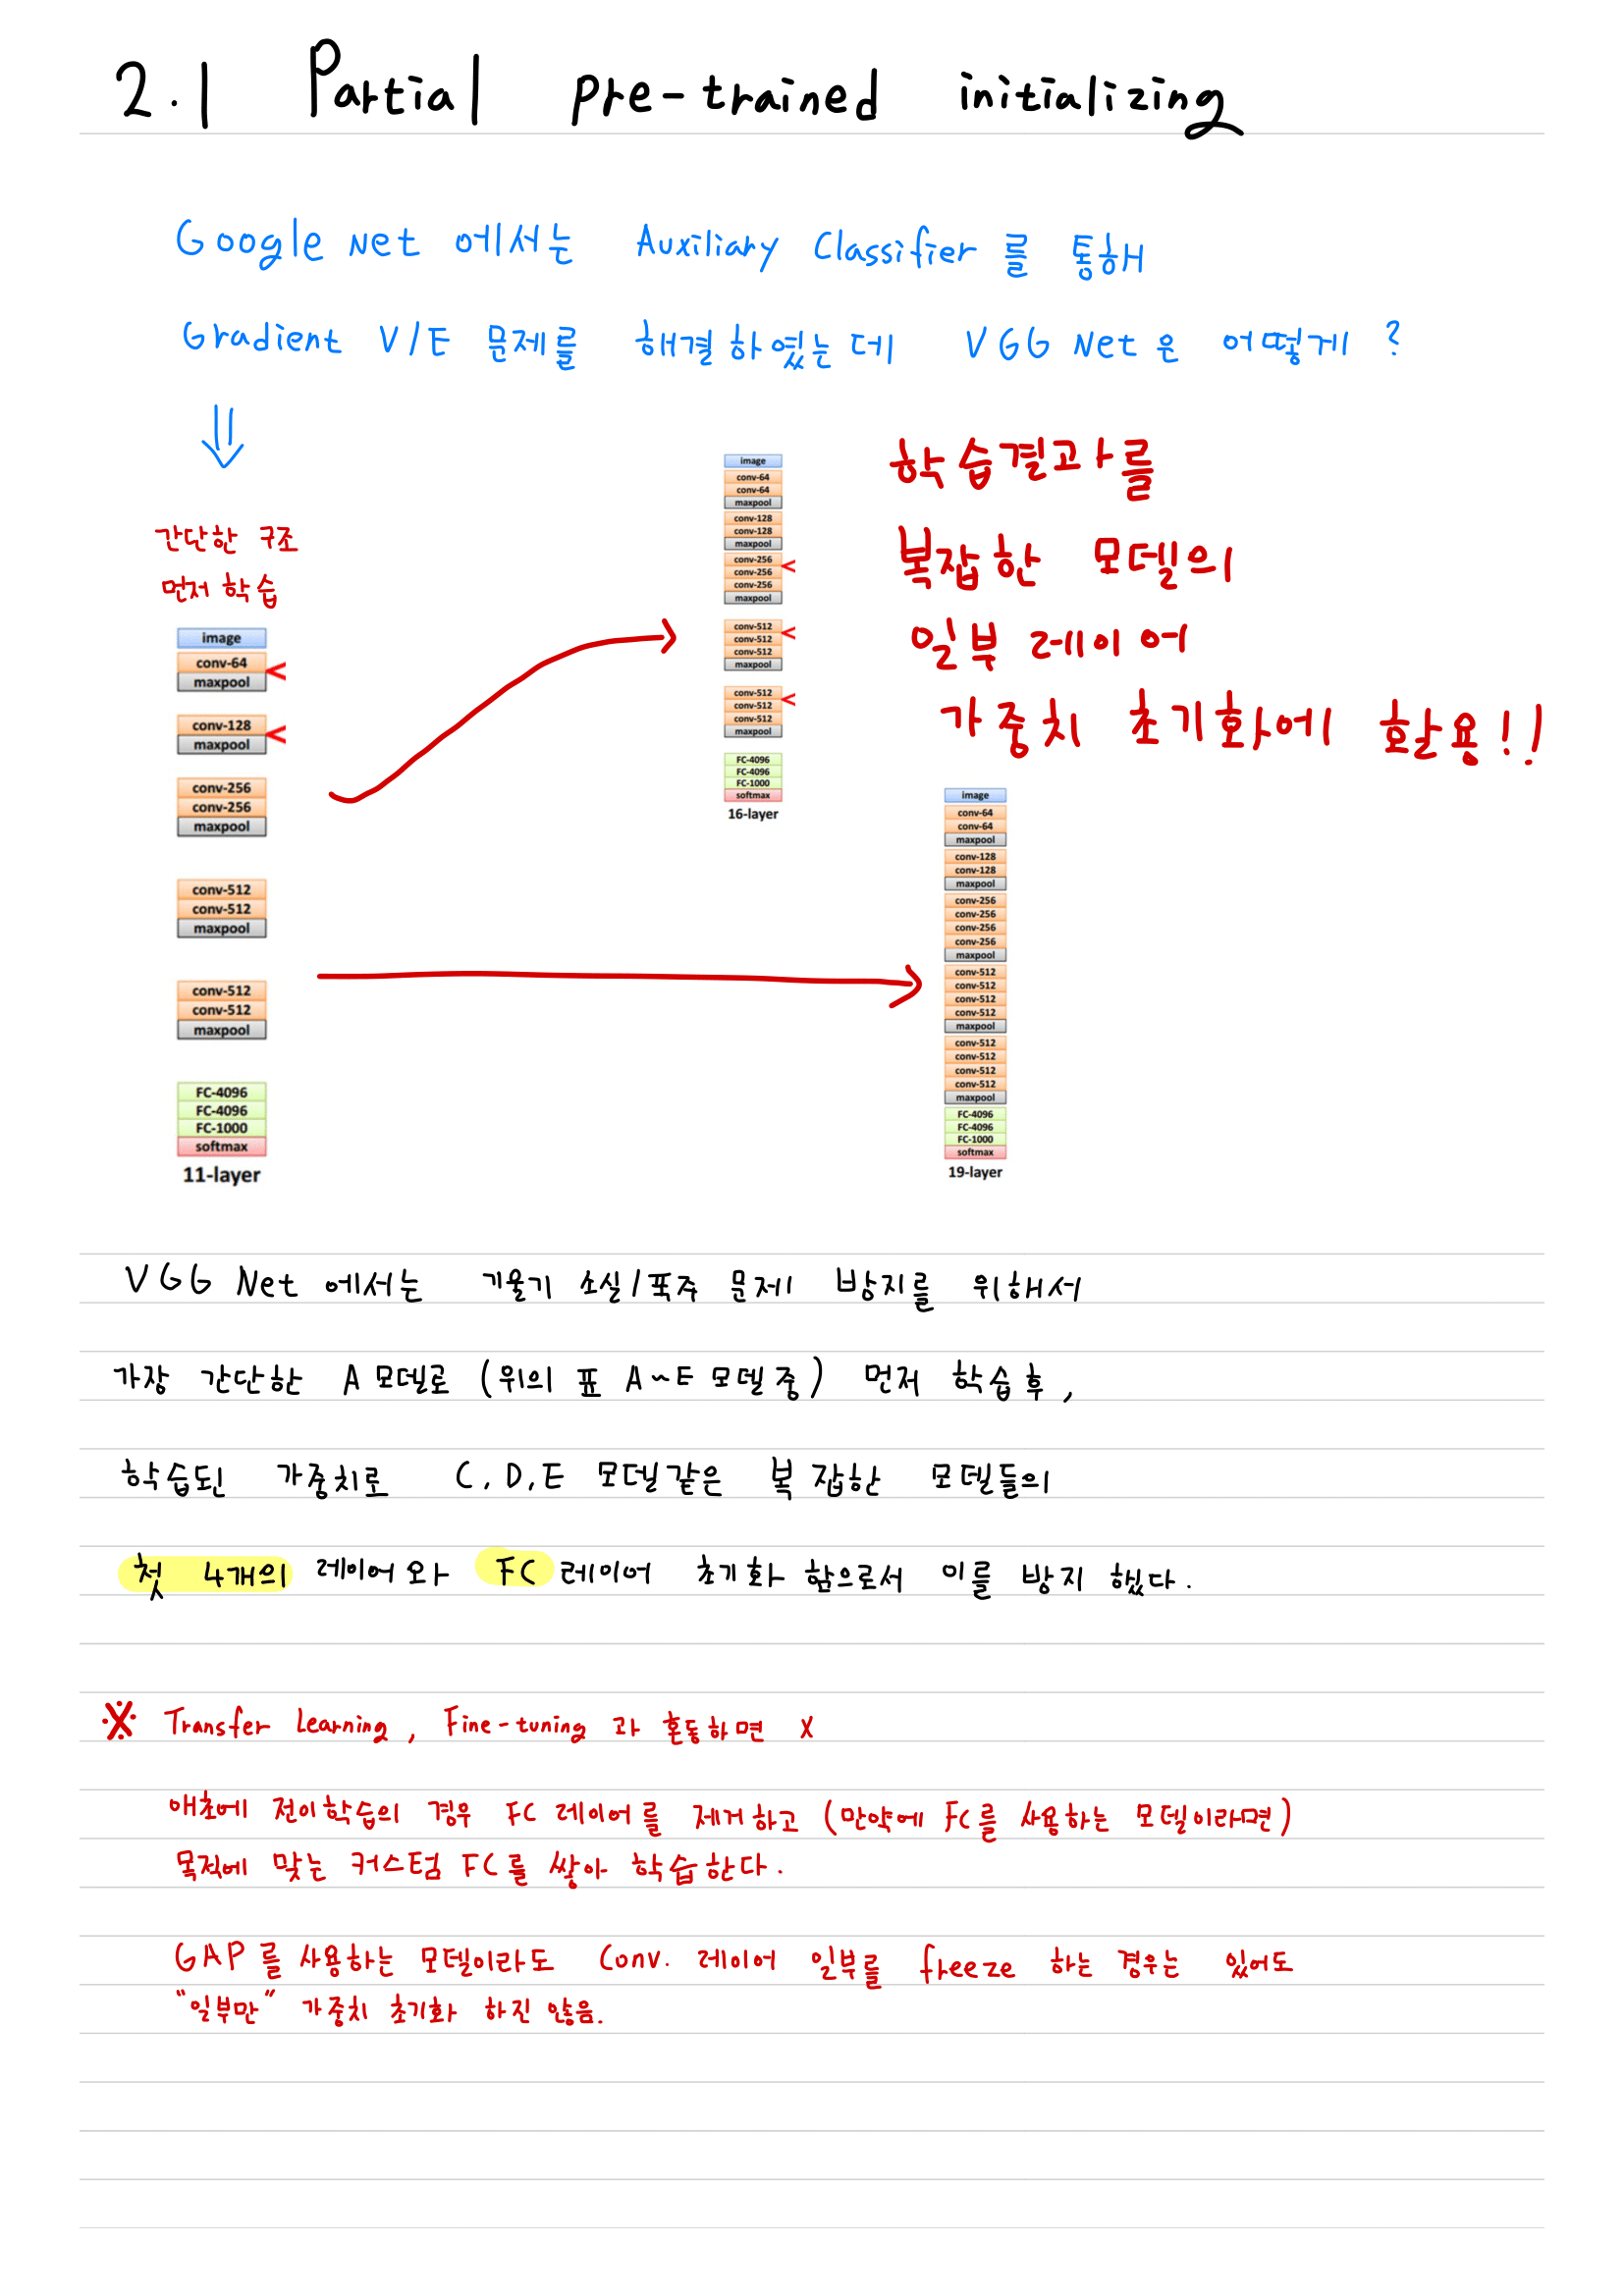 2.1 Partial pre-trained initializing
Google Net 에서는 Auxiliary Classifier 를 통해
Gradient V/E 문제를 해결하였는데 VGG Net은 어떻게 ?
간단한 구조
먼저 학습
image
conv-64
maxpool
conv-128
maxpool
conv-256
conv-256
maxpool
conv-512
conv-512
maxpool
conv-512
conv-512
maxpool
FC-4096
FC-4096
FC-1000
softmax
11-layer
image
conv-64
conv-64
maxpool
conv-128
conv-128
maxpool
conv-256
conv-256
conv-256
maxpool
conv-512
conv-512
conv-512
maxpool
conv-512
conv-512
conv-512
maxpool
FC-4096
FC-4096
FC-1000
softmax
16-layer
학습결과를
복잡한 모델의
일부 레이어
가중치 초기화에 활용!!
image
conv-64
conv-64
maxpool
conv-128
conv-128
maxpool
conv-256
conv-256
conv-256
conv-256
maxpool
conv-512
conv-512
conv-512
conv-512
maxpool
conv-512
conv-512
conv-512
conv-512
maxpool
FC-4096
FC-4096
FC-1000
softmax
19-layer
VGG Net 에서는 기울기 소실/폭주 문제 방지를 위해서
가장 간단한 A 모델로 (위의 표 A~E 모델 중) 먼저 학습 후,
학습된 가중치로 C, D, E 모델같은 복잡한 모델들의
첫 4개의 레이어와 FC 레이어 초기화 함으로서 이를 방지 했다.
※ Transfer Learning, Fine-tuning 과 혼동하면 x
애초에 전이학습의 경우 FC 레이어를 제거하고 (만약에 FC를 사용하는 모델이라면)
목적에 맞는 커스텀 FC를 쌓아 학습한다.
GAP를 사용하는 모델이라도 Conv. 레이어 일부를 freeze 하는 경우는 있어도
"일부만" 가중치 초기화 하진 않음.